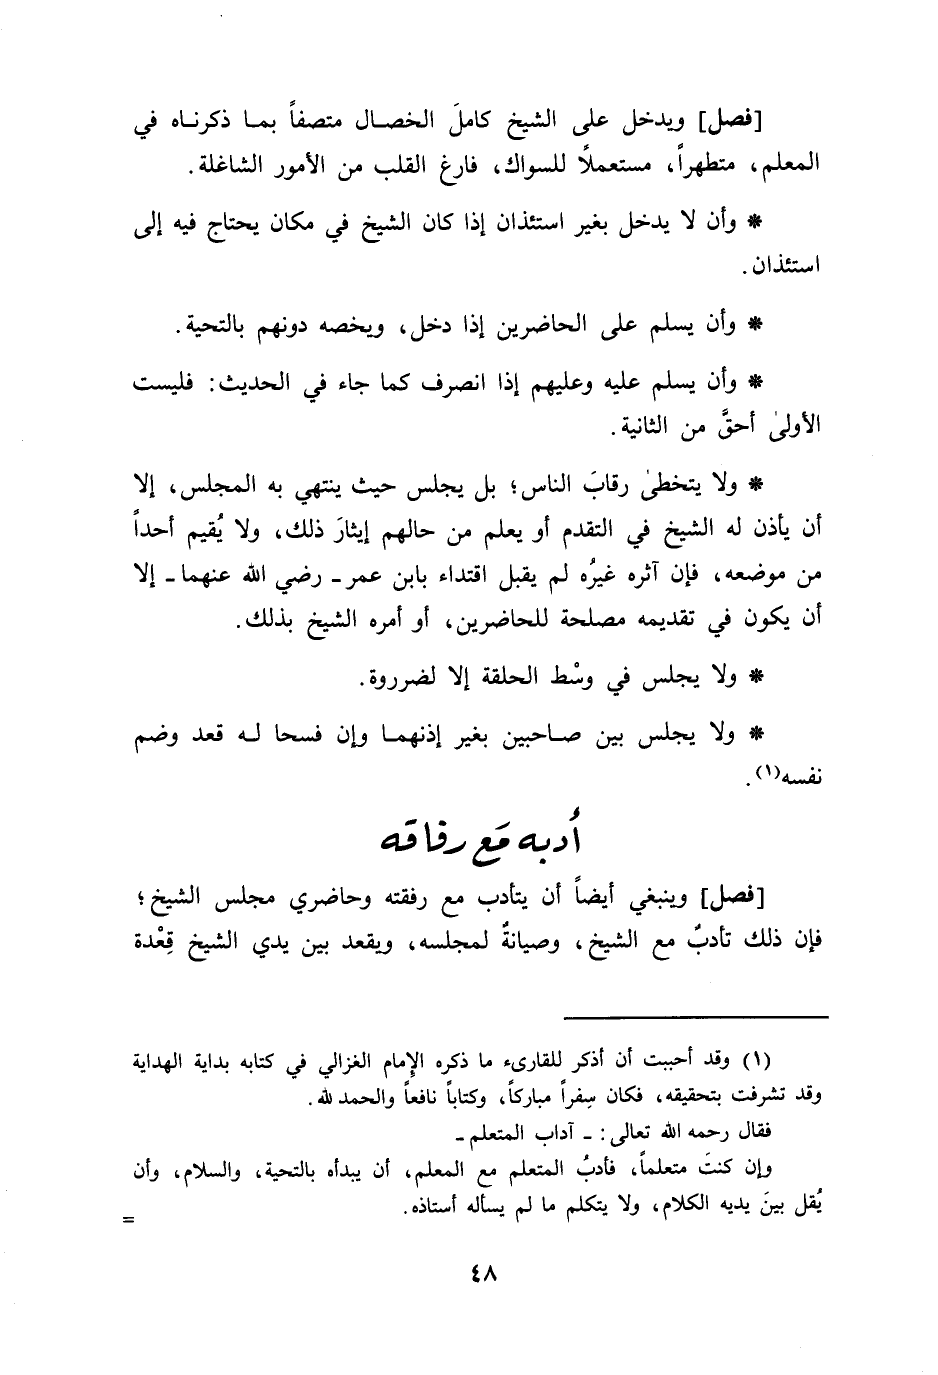 [فصل] ويدخل على الشيخ كاملَ الخصـال متصفاً بمـا ذكرنـاه في
المعلم، متطهراً، مستعملًا للسواك، فارغ القلب من الأمور الشاغلة.
* وأن لا يدخل بغير استئذان إذا كان الشيخ في مكان يحتاج فيه إلى
استئذان.
* وأن يسلم على الحاضرين إذا دخل، ويخصه دونهم بالتحية.
* وأن يسلم عليه وعليهم إذا انصرف كما جاء في الحديث: فليست
الأولىٰ أحقَّ من الثانية.
* ولا يتخطىٰ رقابَ الناس؛ بل يجلس حيث ينتهي به المجلس، إلا
أن يأذن له الشيخ في التقدم أو يعلم من حالهم إيثارَ ذلك، ولا يُقيم أحداً
من موضعه، فإن آثره غيرُه لم يقبل اقتداء بابن عمر ـ رضي الله عنهما ـ إلا
أن يكون في تقديمه مصلحة للحاضرين، أو أمره الشيخ بذلك.
* ولا يجلس في وسْط الحلقة إلا لضرروة.
* ولا يجلس بين صـاحبين بغير إذنهمـا وإن فسحا لـه قعد وضم
نفسه(١).
أدبه مَع رفاقه
[فصل] وينبغي أيضاً أن يتأدب مع رفقته وحاضري مجلس الشيخ؛
فإن ذلك تأدبٌ مع الشيخ، وصيانةٌ لمجلسه، ويقعد بين يدي الشيخ قِعْدة
(١) وقد أحببت أن أذكر للقارىء ما ذكره الإمام الغزالي في كتابه بداية الهداية
وقد تشرفت بتحقيقه، فكان سِفراً مباركاً، وكتاباً نافعاً والحمد لله.
فقال رحمه الله تعالى: ـ آداب المتعلم ـ
وإن كنتَ متعلماً، فأدبُ المتعلم مع المعلم، أن يبدأه بالتحية، والسلام، وأن
يُقل بينَ يديه الكلام، ولا يتكلم ما لم يسأله أستاذه.
=
٤٨